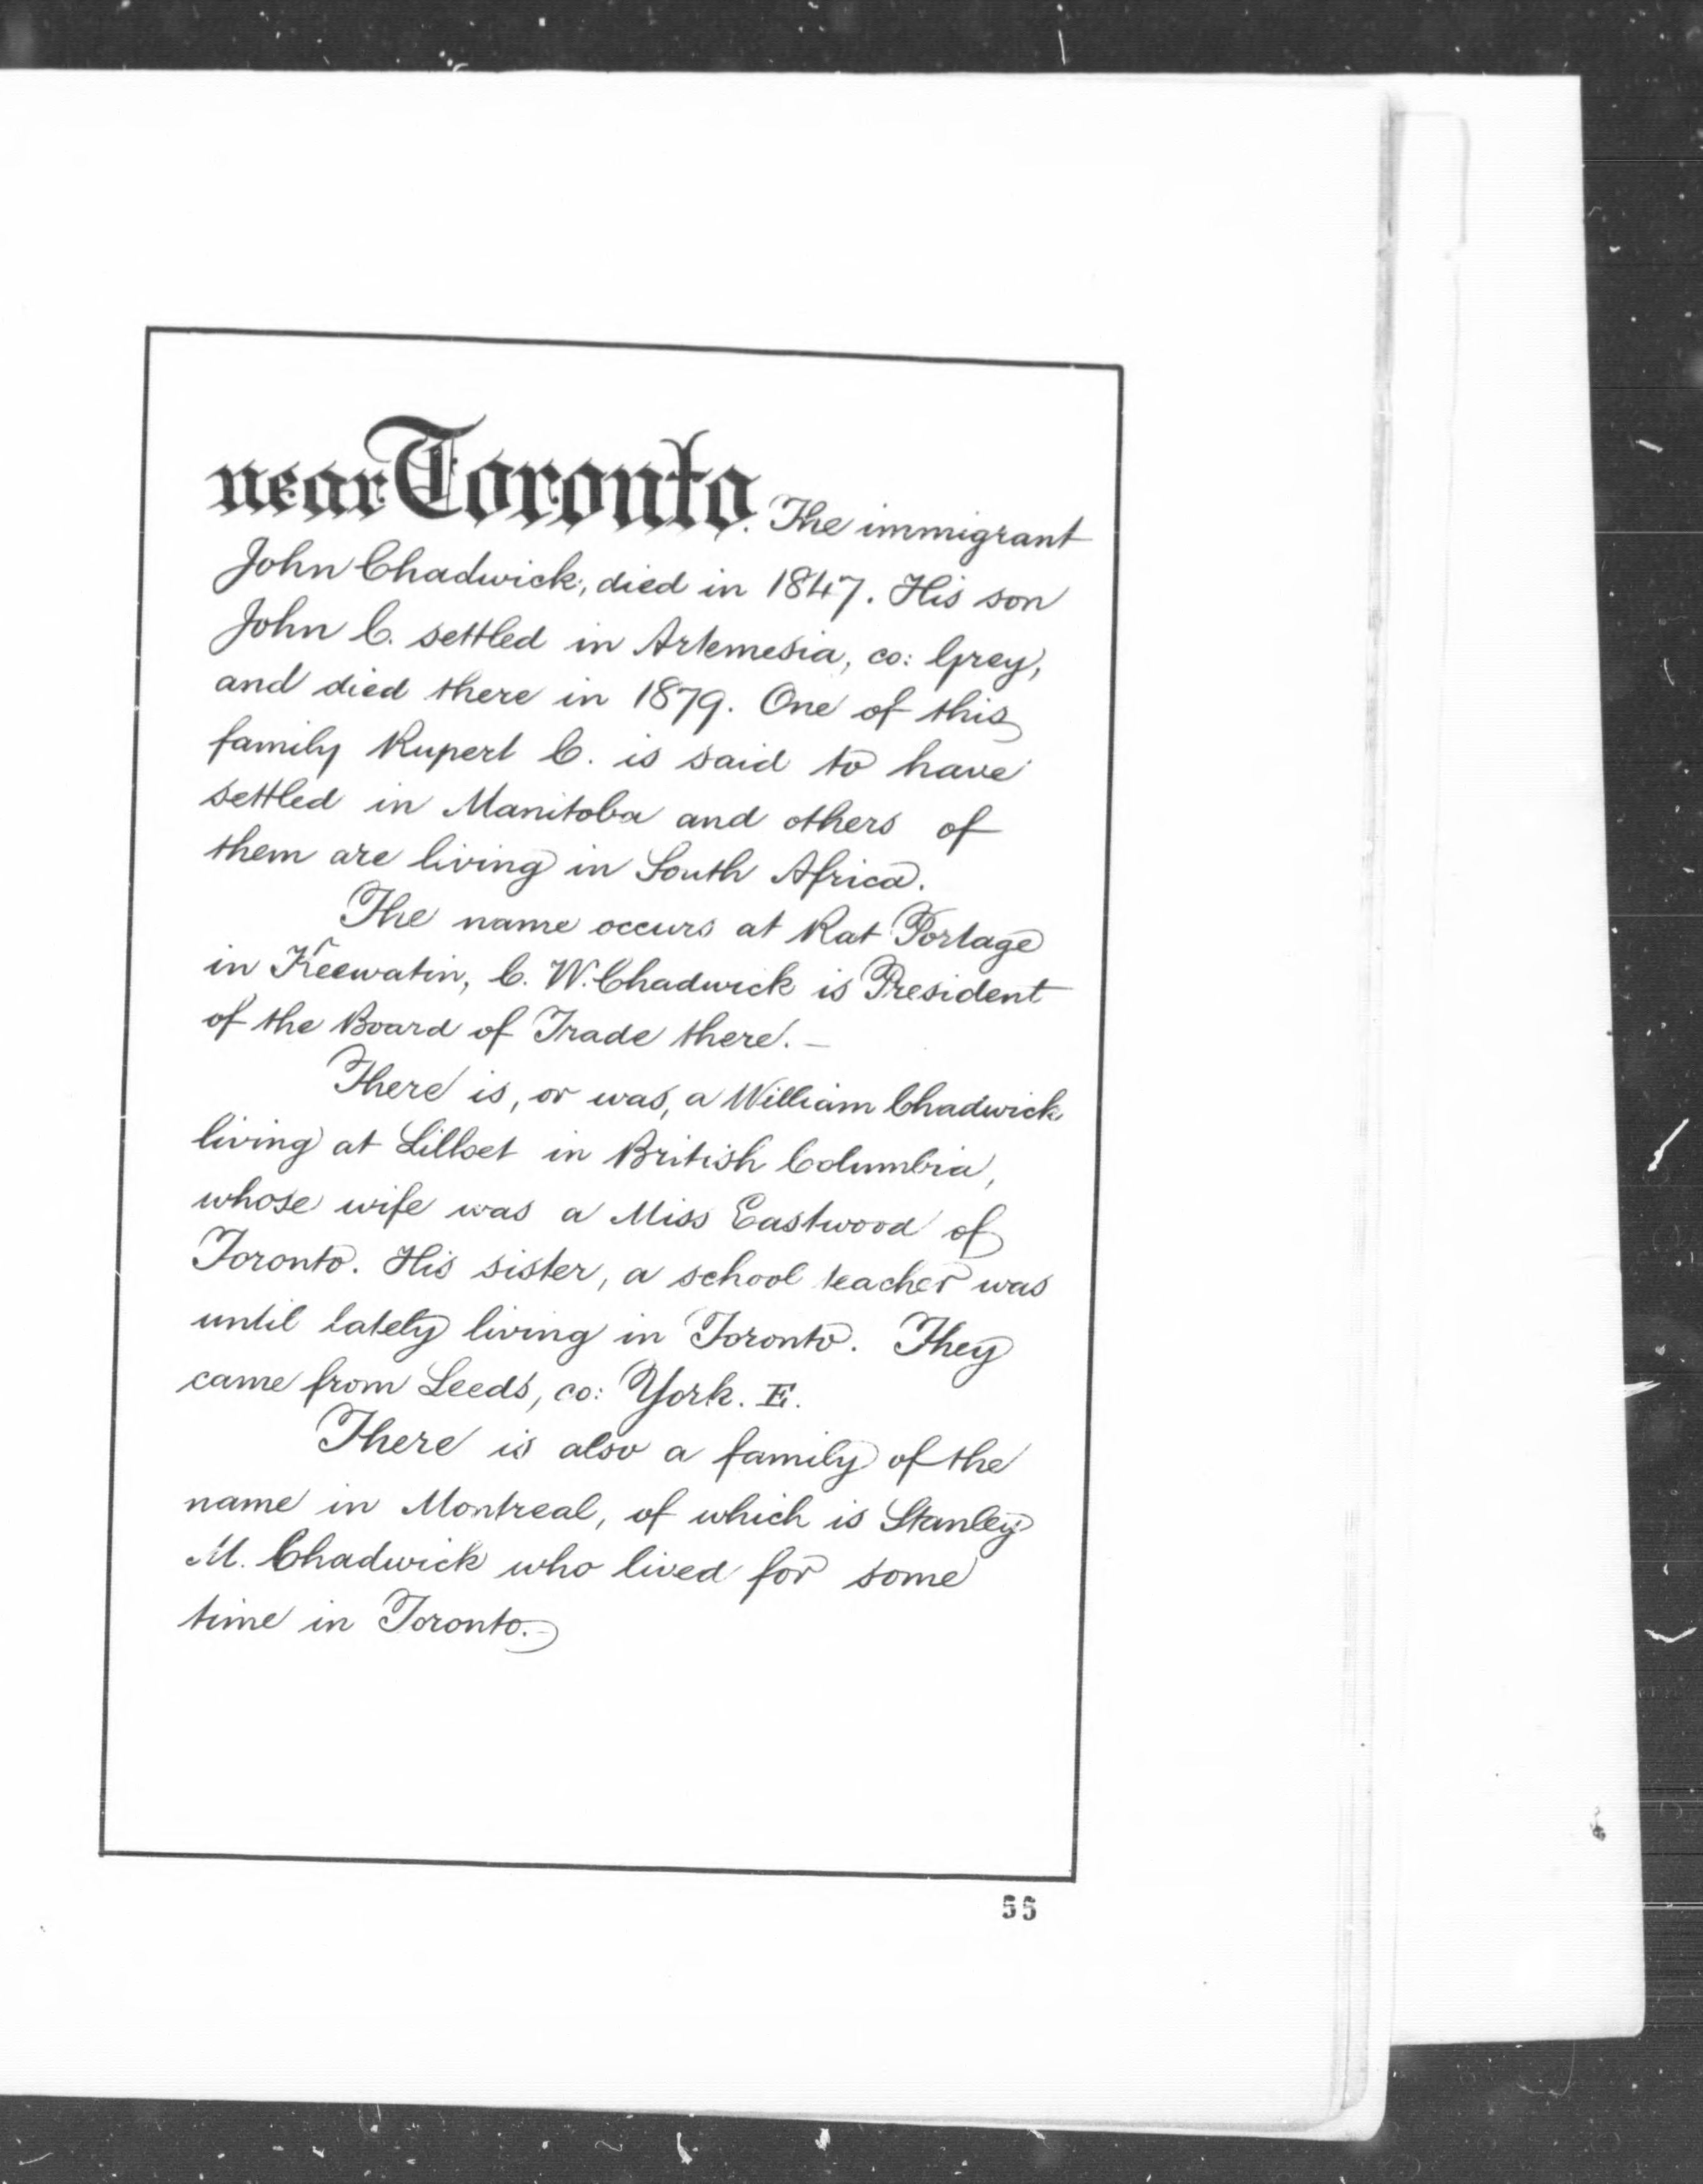 near Toronto. The immigrant
John Chadwick, died in 1847. His son
John C. settled in Artemesia, co: Grey,
and died there in 1879. One of this
family Rupert C. is said to have
settled in Manitoba and others of
them are living in South Africa.
The name occurs at Rat Portage
in Keewatin, C. W. Chadwick is President
of the Board of Trade there. —
There is, or was, a William Chadwick
living at Lilloet in British Columbia,
whose wife was a Miss Eastwood of
Toronto. His sister, a school teacher was
until lately living in Toronto. They
came from Leeds, co: York. E.
There is also a family of the
name in Montreal, of which is Stanley
M. Chadwick who lived for some
time in Toronto. —
55